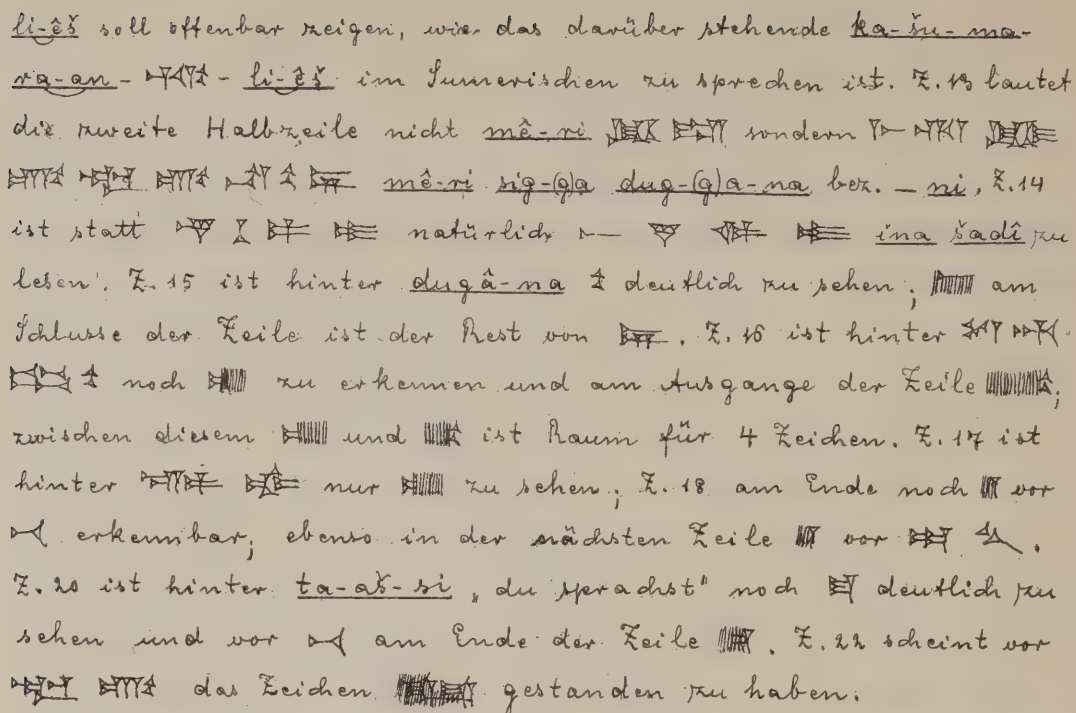 li-êš soll offenbar zeigen, wie das darüber stehende ka-šu-ma-
ra-an- - li-êš im Sumerischen zu sprechen ist. Z. 13 lautet
die zweite Halbzeile nicht mê-ri sondern
mê-ri sig-(g)a dug-(g)a-na bez. – ni. Z. 14
ist statt natürlich ina šadî zu
lesen. Z. 15 ist hinter dugâ-na deutlich zu sehen; am
Schlusse der Zeile ist der Rest von . Z. 16 ist hinter
noch zu erkennen und am Ausgange der Zeile ;
zwischen diesem und ist Raum für 4 Zeichen. Z. 17 ist
hinter nur zu sehen; Z. 18 am Ende noch vor
erkennbar, ebenso in der nächsten Zeile vor .
Z. 20 ist hinter ta-aš-si „du sprachst" noch deutlich zu
sehen und vor am Ende der Zeile . Z. 22 scheint vor
das Zeichen gestanden zu haben.